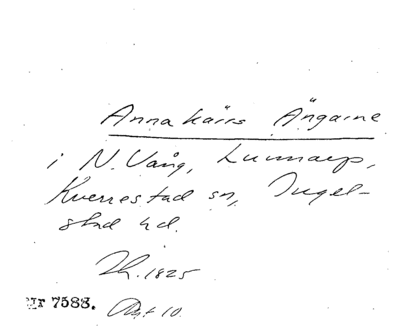 Annakärrs Ängarne
i N. Vång, Lunnarp,
Kverrestad sn, Ingel-
stad hd.
Lh. 1825
Nr 7588. Akt 10